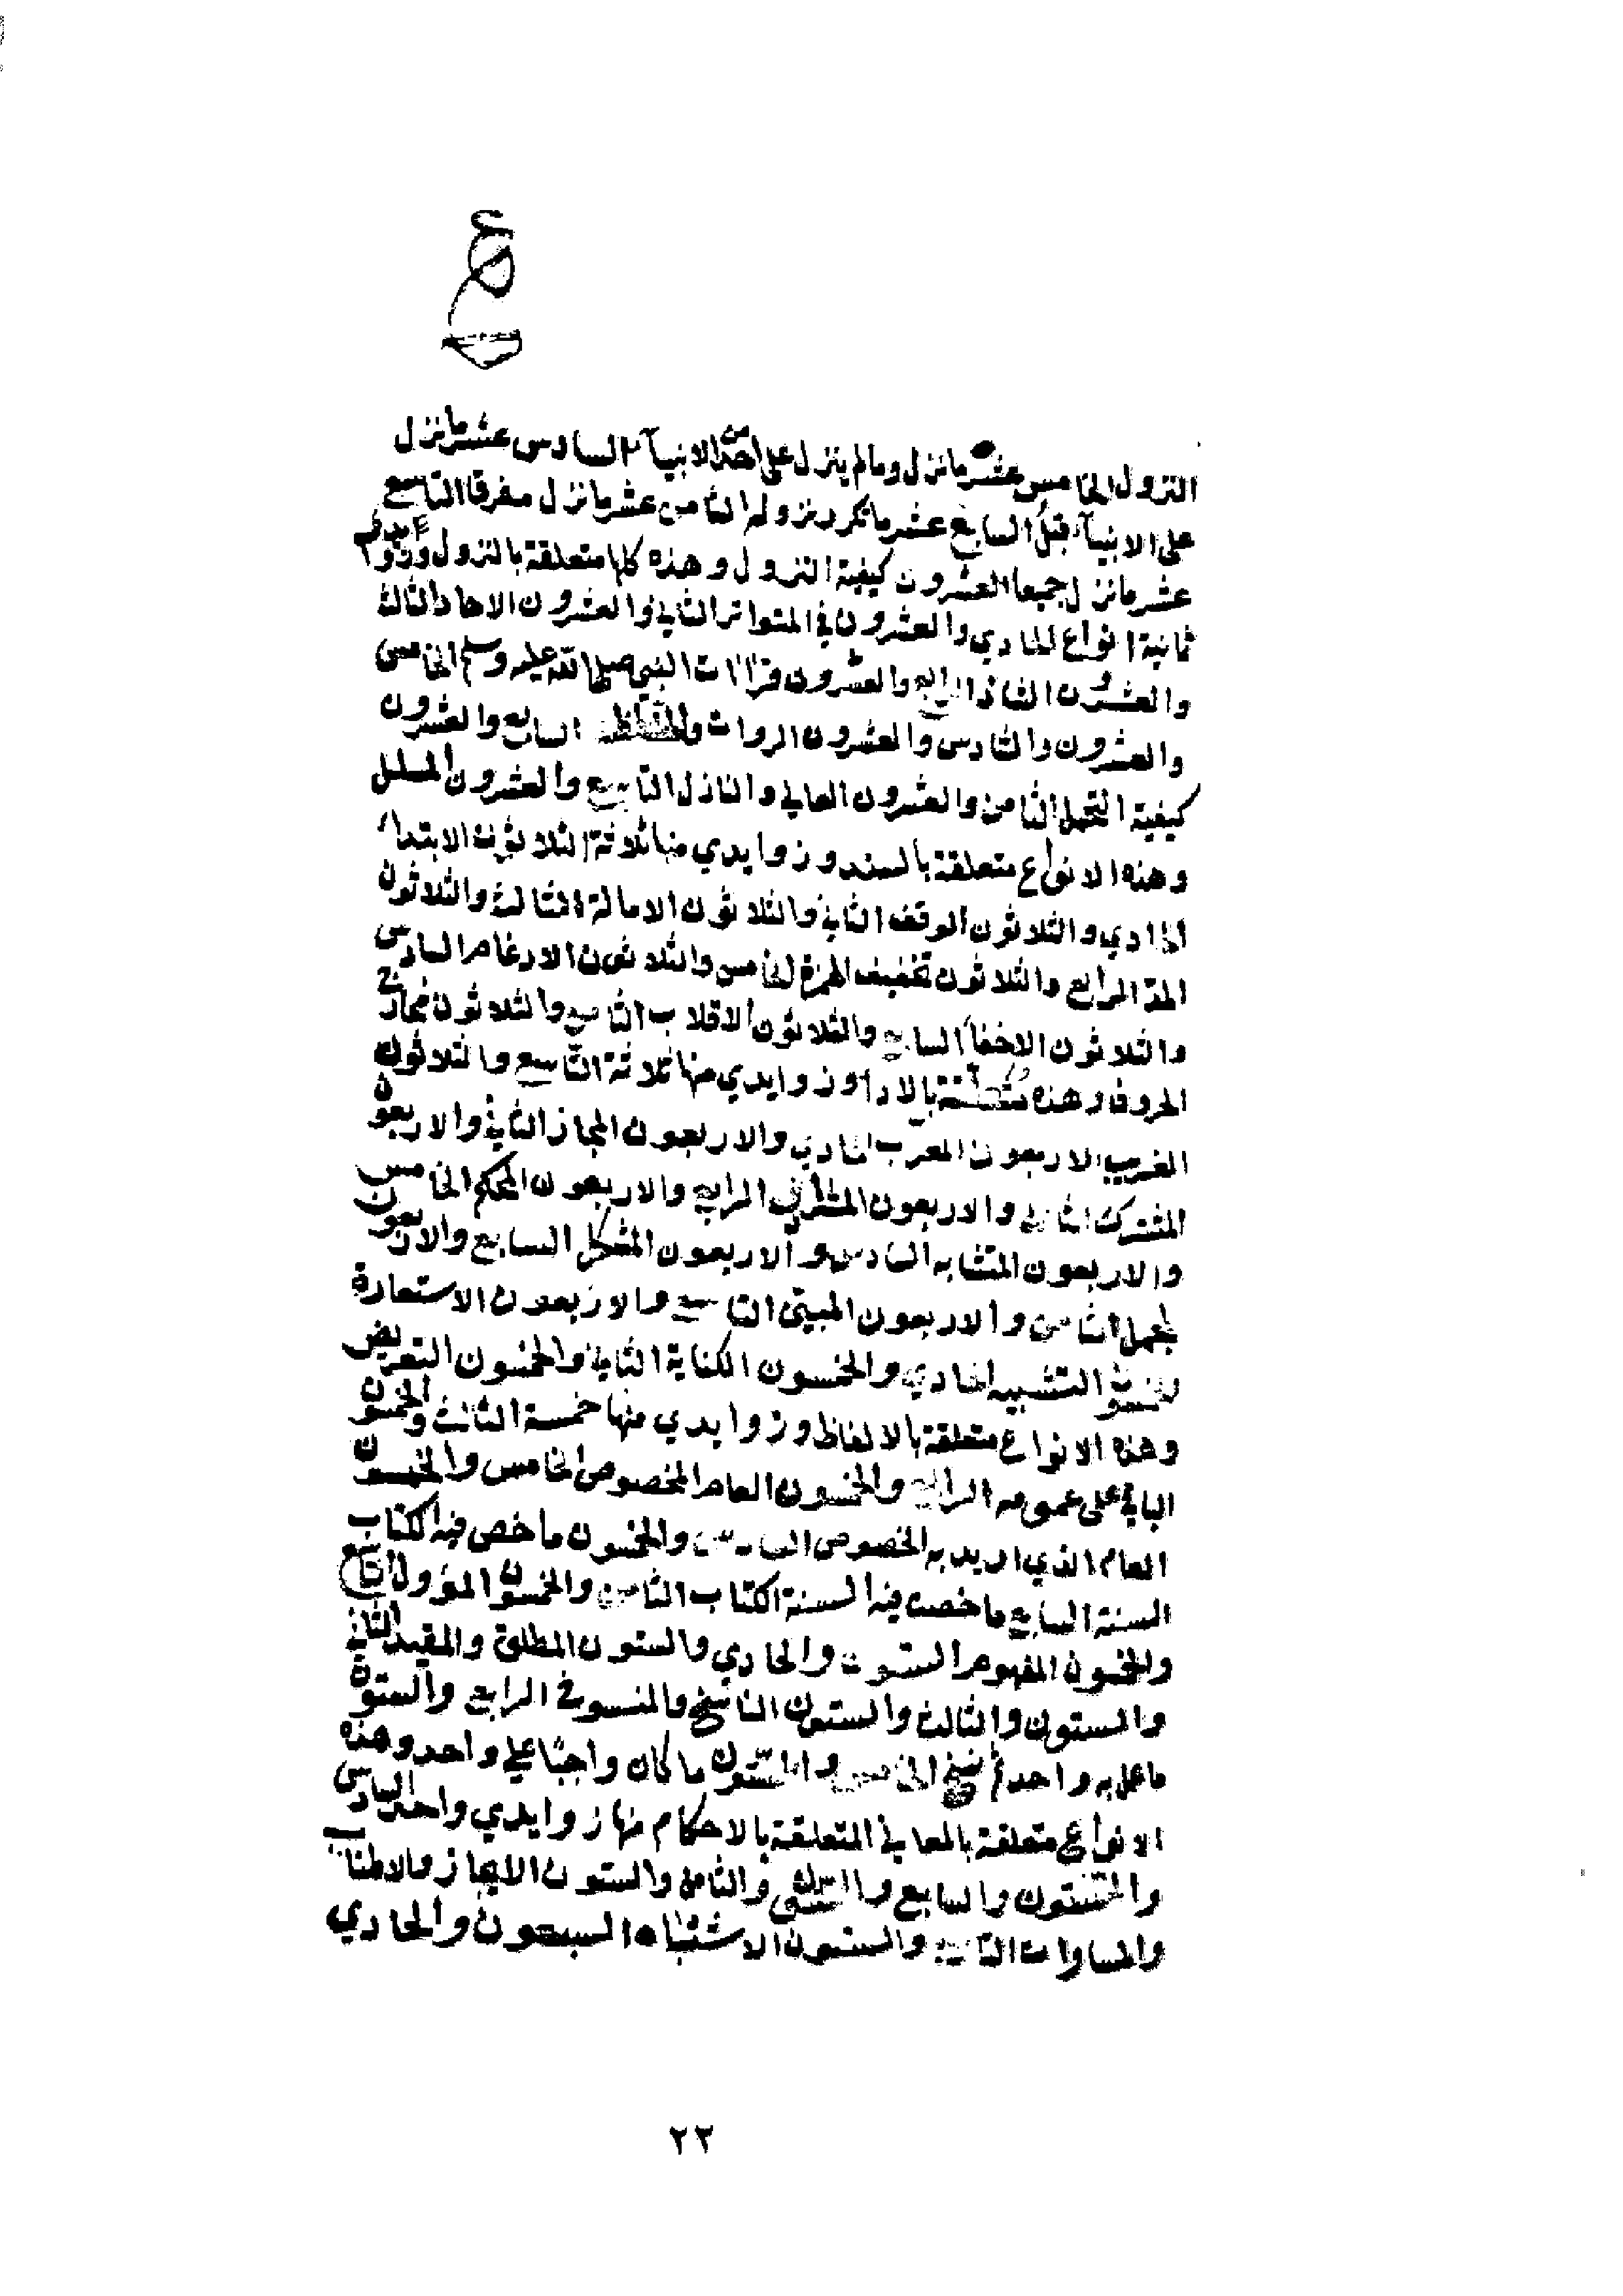 النزول الخامس عشر ما نزل وما لم ينزل على احد من الانبياء السادس عشر ما نزل
على الانبياء قبل السابع عشر ما تكرر نزوله الثامن عشر ما نزل مفرقا التاسع
عشر ما نزل جميعا العشرون كيفية النزول وهذه كلها متعلقة بالنزول
ثمانية انواع الحادي والعشرون في المتواتر الثاني والعشرون الاحاد الثالث
والعشرون الشاذ الرابع والعشرون قراات النبي صلى الله عليه وسلم الخامس
والعشرون والسادس والعشرون الروات والحفاظ السابع والعشرون
كيفية التحمل الثامن والعشرون العالي والنازل التاسع والعشرون المسلسل
وهذه الانواع متعلقة بالسند وزوايدي منها ثلاثة الثلاثون الابتداء
الحادي والثلاثون الوقف الثاني والثلاثون الامالة الثالث والثلاثون
المد الرابع والثلاثون تخفيف الهمزة الخامس والثلاثون الادغام السادس
والثلاثون الاخفاء السابع والثلاثون الاقلاب الثامن والثلاثون مخارج
الحروف وهذه متعلقة بالاداء وزوايدي منها ثلاثة التاسع والثلاثون
الغريب الاربعون المعرب الحادي والاربعون المجاز الثاني والاربعون
المشترك الثالث والاربعون المترادف الرابع والاربعون المحكم الخامس
والاربعون المتشابه السادس والاربعون المشكل السابع والاربعون
المجمل الثامن والاربعون المبين التاسع والاربعون الاستعارة
الخمسون التشبيه الحادي والخمسون الكناية الثاني والخمسون التعريض
وهذه الانواع متعلقة بالالفاظ وزوايدي منها خمسة الثالث والخمسون
الباقي على عمومه الرابع والخمسون العام المخصوص الخامس والخمسون
العام الذي اريد به الخصوص السادس والخمسون ما خص فيه الكتاب
السنة السابع ما خصت فيه السنة الكتاب الثامن والخمسون المؤول التاسع
والخمسون المفهوم الستون والحادي والستون المطلق والمقيد الثاني
والستون والثالث والستون الناسخ والمنسوخ الرابع والستون
ما عمل به واحد ثم نسخ الخامس والستون ما كان واجبا على واحد وهذه
الانواع متعلقة بالمعاني المتعلقة بالاحكام منها زوايدي واحد السادس
والستون والسابع والستون والثامن والستون الايجاز والاطناب
والمساوات التاسع والستون الاشتباه السبعون والحادي
٢٣